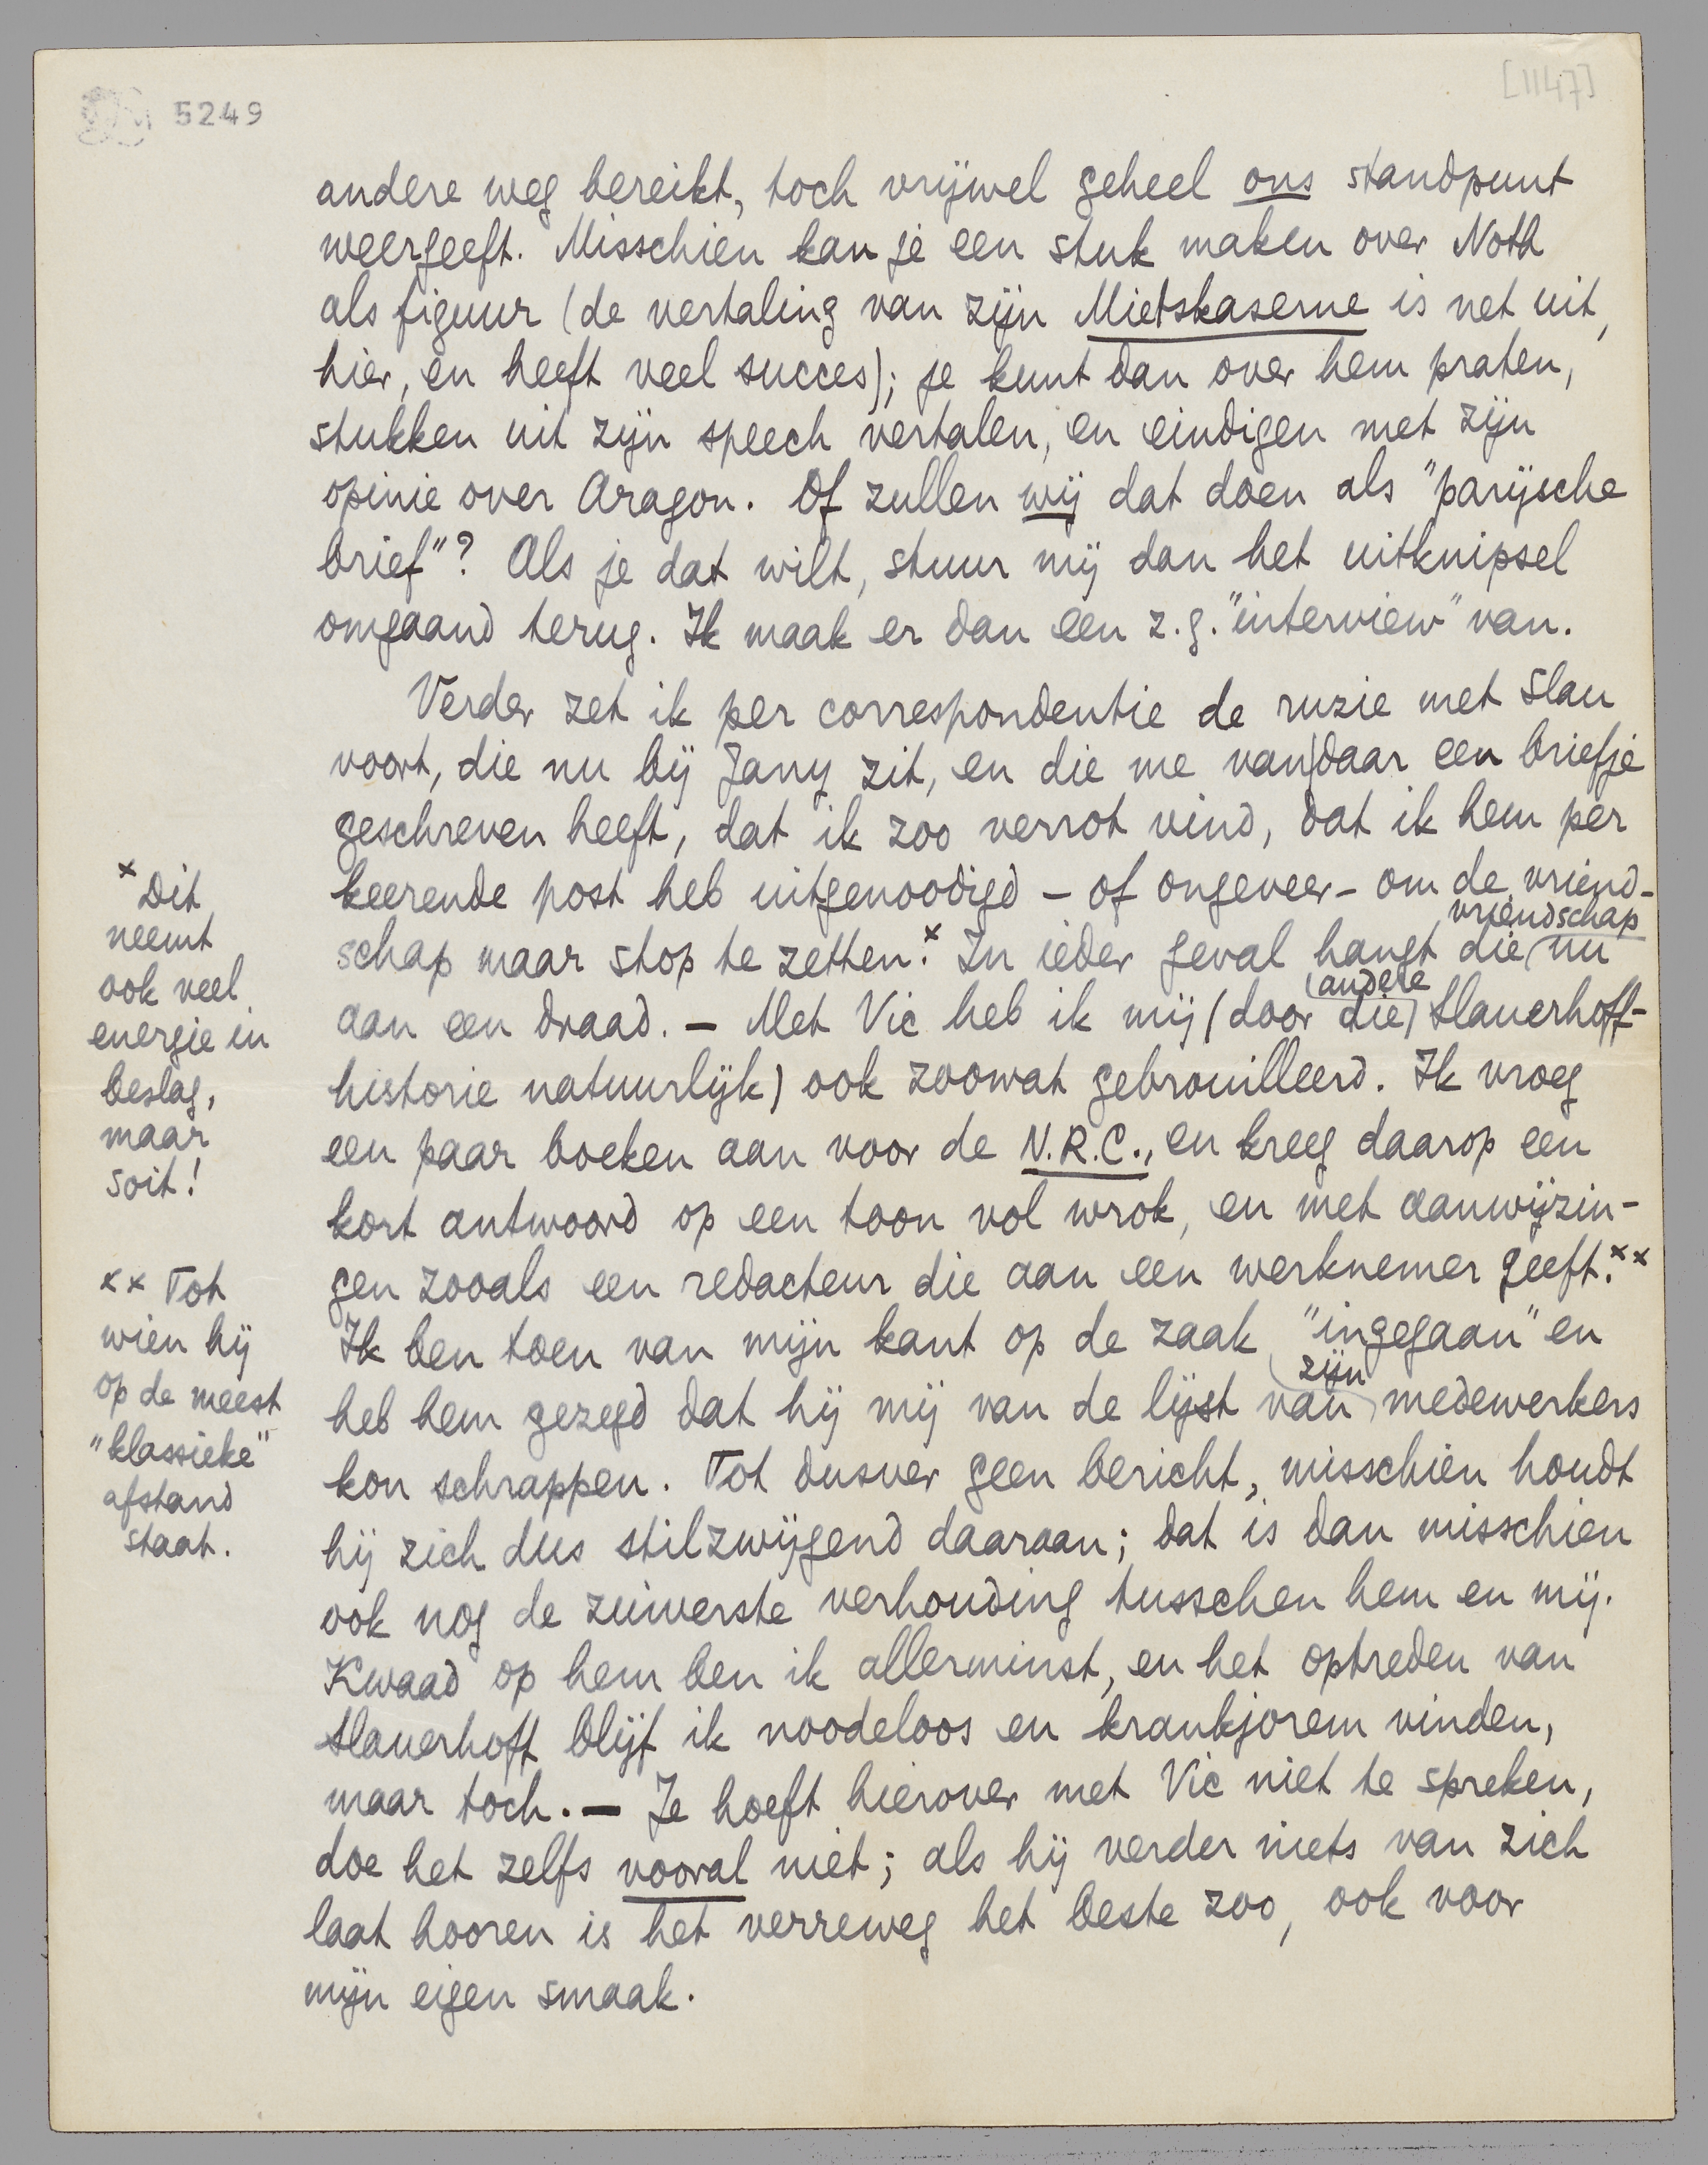 5249
[1147]
andere weg bereikt, toch vrijwel geheel ons standpunt
weergeeft. Misschien kan je een stuk maken over Noth
als figuur (de vertaling van zijn Mietskaserne is net uit,
hier, en heeft veel succes); je kunt dan over hem praten,
stukken uit zijn speech vertalen, en eindigen met zijn
opinie over Aragon. Of zullen wij dat doen als "parijsche
brief"? Als je dat wilt, stuur mij dan het uitknipsel
omgaand terug. Ik maak er dan een z.g. "interview" van.
Verder zet ik per correspondentie de ruzie met Slau
voort, die nu bij Jany zit, en die me van daar een briefje
geschreven heeft, dat ik zoo verrot vind, dat ik hem per
keerende post heb uitgenoodigd - of ongeveer - om de vriend-
schap maar stop te zetten.x In ieder geval hangt die vriendschap nu
aan een draad. - Met Vic heb ik mij (door die andere Slauerhoff-
historie natuurlijk) ook zoowat gebrouilleerd. Ik vroeg
een paar boeken aan voor de N.R.C., en kreeg daarop een
kort antwoord op een toon vol wrok, en met aanwijzin-
gen zooals een redacteur die aan een werknemer geeft.xx
Ik ben toen van mijn kant op de zaak "ingegaan" en
heb hem gezegd dat hij mij van de lijst van zijn medewerkers
kon schrappen. Tot dusver geen bericht, misschien houdt
hij zich dus stilzwijgend daaraan; dat is dan misschien
ook nog de zuiverste verhouding tusschen hem en mij.
Kwaad op hem ben ik allerminst, en het optreden van
Slauerhoff blijf ik noodeloos en krankjorem vinden,
maar toch. - Je hoeft hierover met Vic niet te spreken,
doe het zelfs vooral niet; als hij verder niets van zich
laat hooren is het verreweg het beste zoo, ook voor
mijn eigen smaak.
x Dit
neemt
ook veel
energie in
beslag,
maar
soit!
xx Tot
wien hij
op de meest
"klassieke"
afstand
staat.